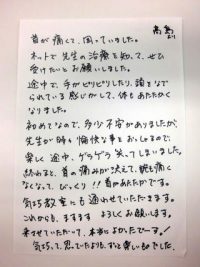 高島
より
首が痛くて、困っていました。
ネットで先生の治療を知って、ぜひ
受けたいとお願いしました。
途中で、手がピリピリしたり、頭をなで
られている感じがして、体もあたたかく
なりました。
初めてなので、多少不安がありましたが、
先生が時々愉快な事をおっしゃるので、
楽しく途中、ゲラゲラ笑ってしまいました。
終わると、首の痛みが消えて、腕も痛く
なくなって、びっくり!!首があたたかです。
気功教室にも通わせていただきます。
これからも、ますますよろしくお願いします。
来させていただいて、本当によかったでーす!
気功って、思っていたよりも、ずっと楽しいものでした。